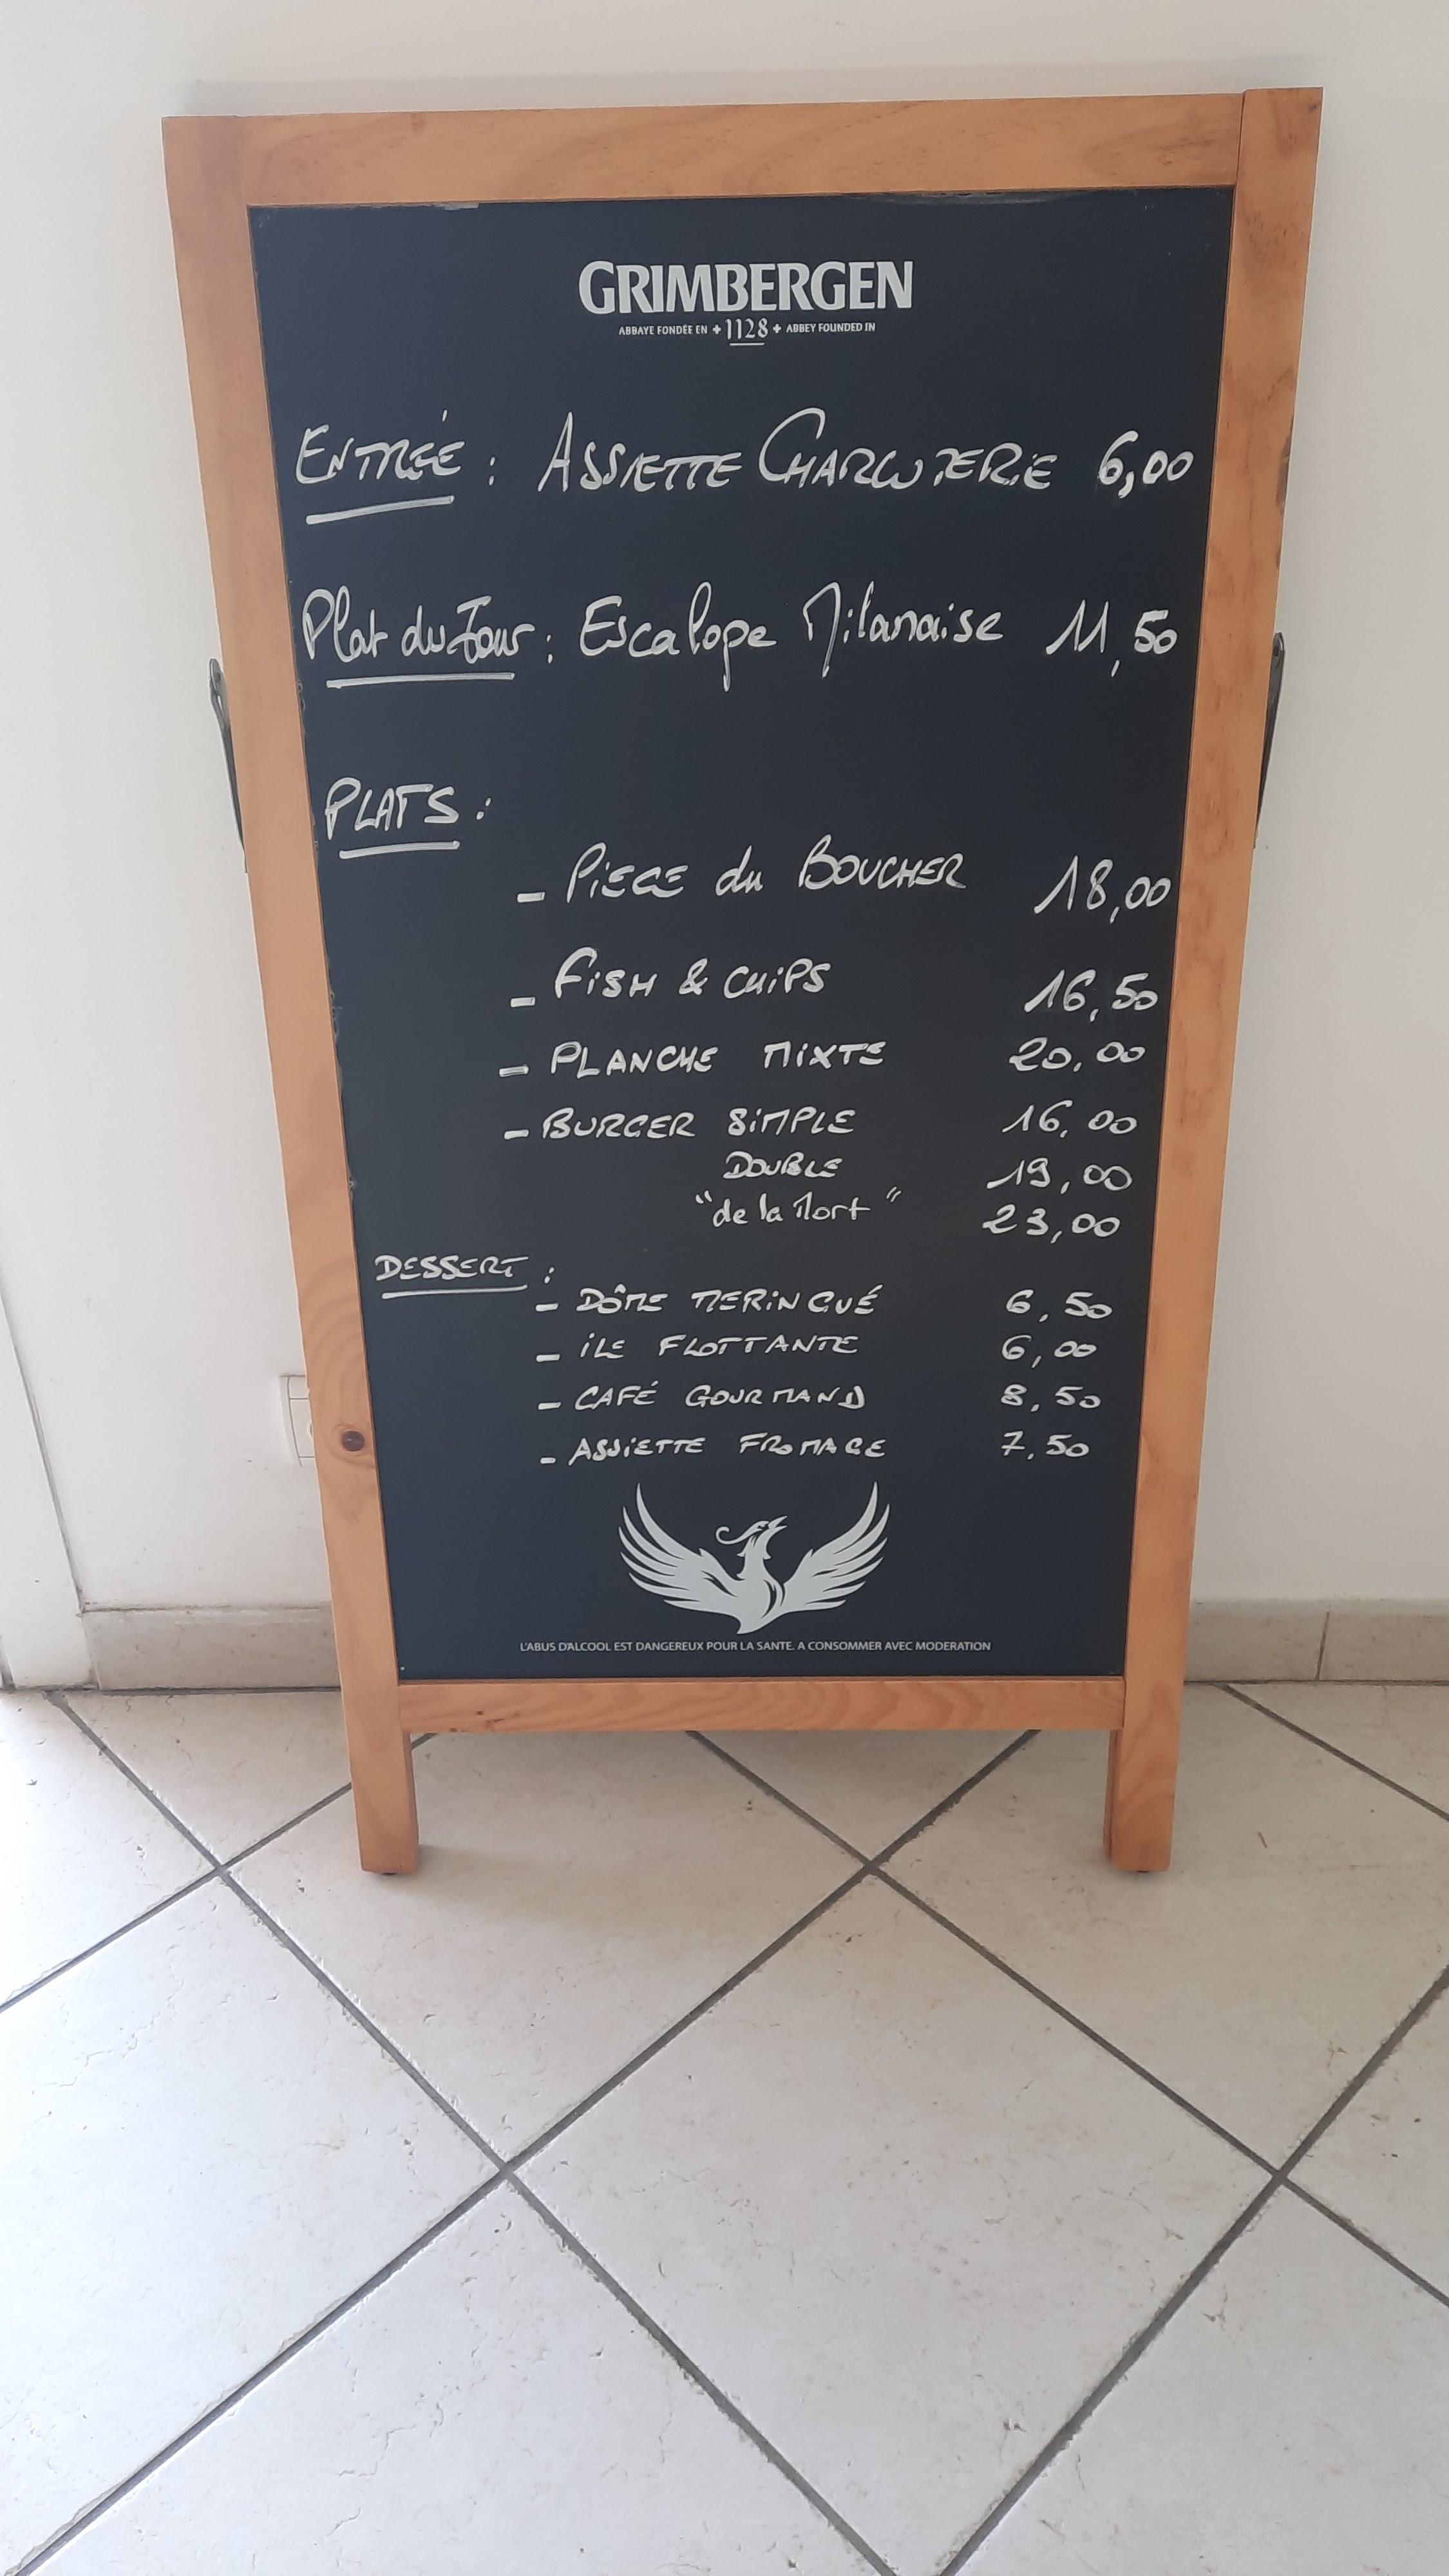 GRIMBERGEN
ABBAYE FONDÉE EN + 1128 + ABBEY FOUNDED IN
ENTRÉE : ASSIETTE CHARCUTERIE 6,00
Plat du Jour : Escalope Milanaise 11,50
PLATS :
- PIECE du BOUCHER 18,00
- FISH & CHIPS 16,50
- PLANCHE MIXTE 20,00
- BURGER SIMPLE 16,00
DOUBLE 19,00
"de la Mort" 23,00
DESSERT :
- DÔME MERINGUÉ 6,50
- ILE FLOTTANTE 6,00
- CAFÉ GOURMAND 8,50
- ASSIETTE FROMAGE 7,50
L'ABUS D'ALCOOL EST DANGEREUX POUR LA SANTE. A CONSOMMER AVEC MODERATION